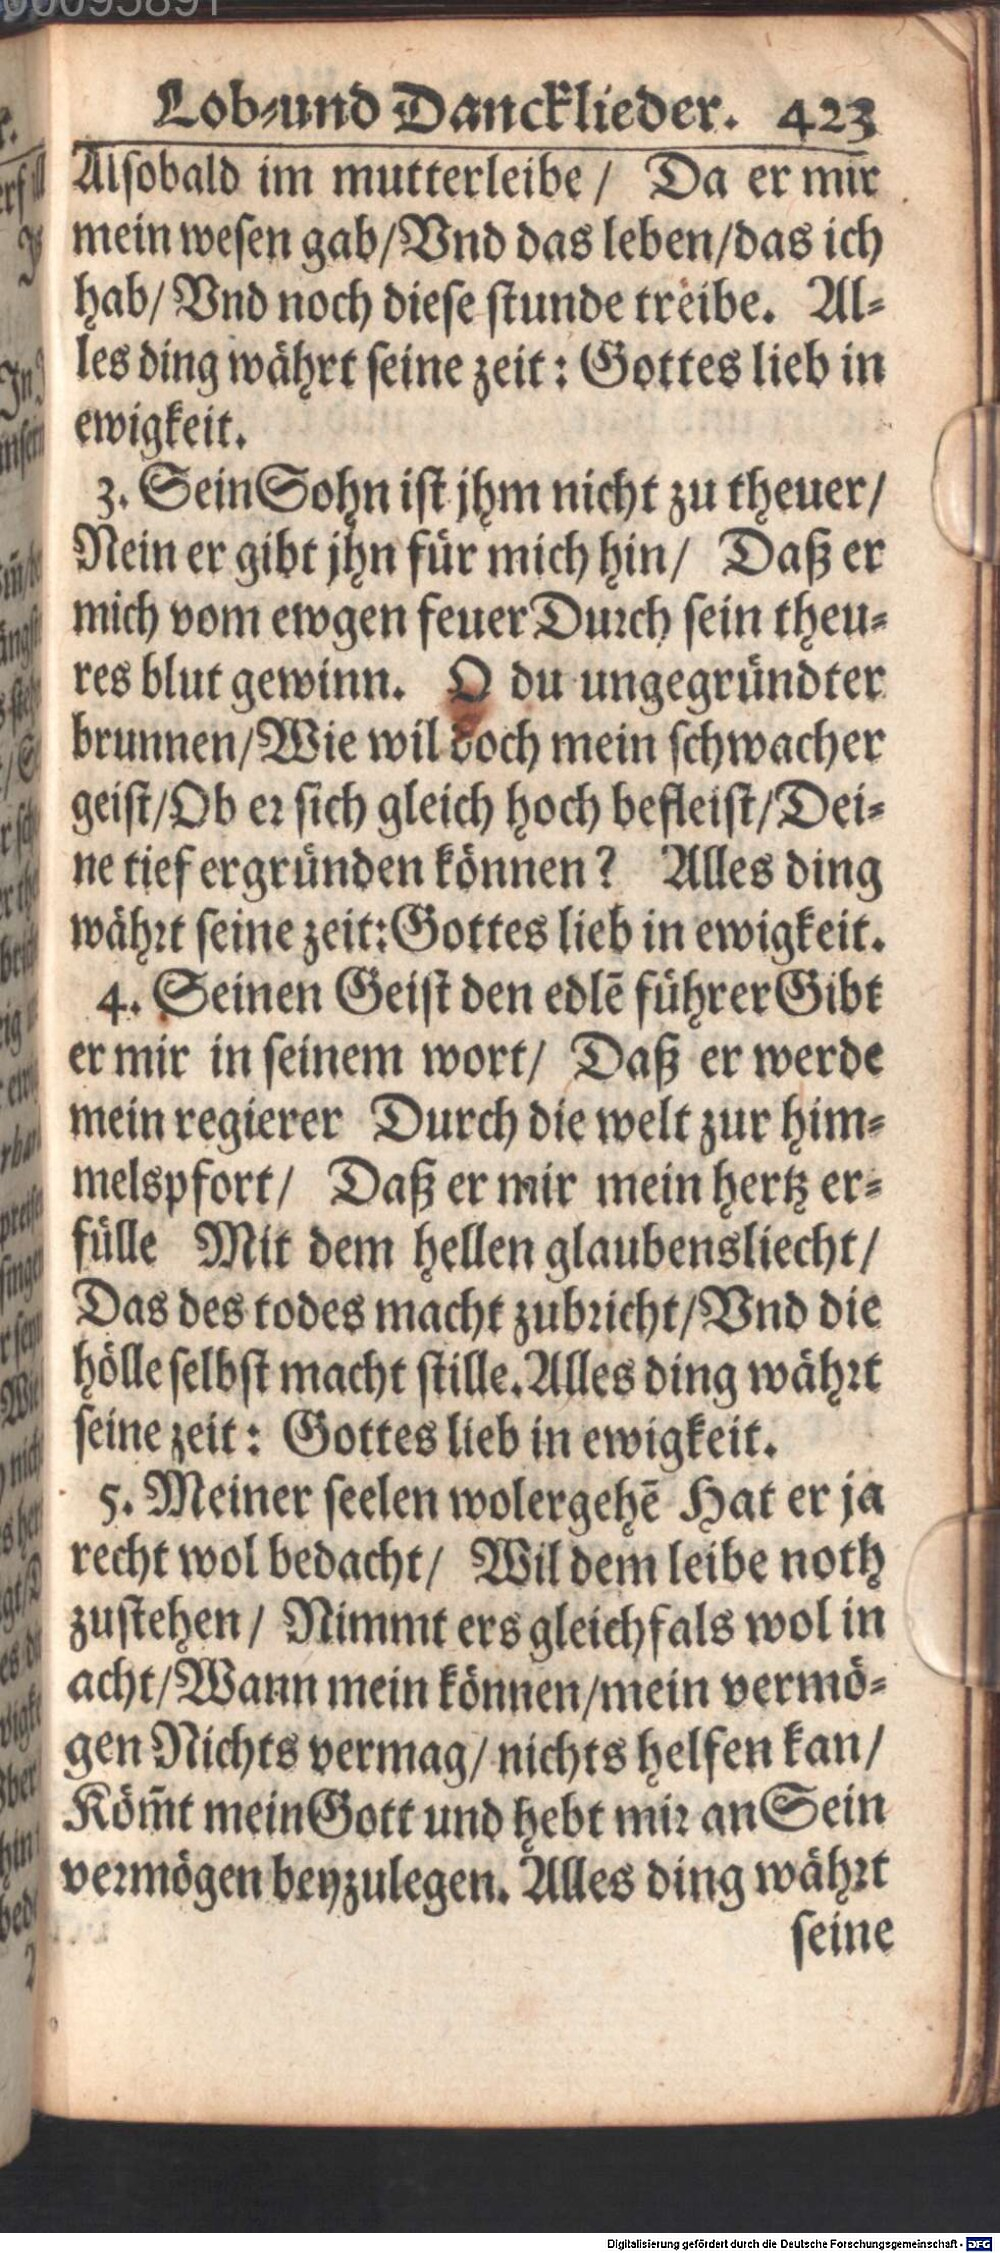 Lob-und Dancklieder. 423
Alſobald im mutterleibe / Da er mir
mein weſen gab/Vnd das leben/das ich
hab/ Vnd noch dieſe ſtunde treibe. Al-
les ding währt ſeine zeit: Gottes lieb in
ewigkeit.
3. Sein Sohn iſt jhm nicht zu theuer/
Nein er gibt jhn für mich hin/ Daß er
mich vom ewgen feuer Durch ſein theu-
res blut gewinn. O du ungegründter
brunnen/Wie wil doch mein ſchwacher
geiſt/Ob er ſich gleich hoch befleiſt/Dei-
ne tief ergründen können? Alles ding
währt ſeine zeit:Gottes lieb in ewigkeit.
4. Seinen Geiſt den edlē führer Gibt
er mir in ſeinem wort/ Daß er werde
mein regierer Durch die welt zur him-
melspfort/ Daß er mir mein hertz er-
fülle Mit dem hellen glaubensliecht/
Das des todes macht zubricht/Vnd die
hölle ſelbſt macht ſtille. Alles ding währt
ſeine zeit: Gottes lieb in ewigkeit.
5. Meiner ſeelen wolergehē Hat er ja
recht wol bedacht/ Wil dem leibe noth
zuſtehen/ Nimmt ers gleichfals wol in
acht/Wann mein können/mein vermö-
gen Nichts vermag/ nichts helfen kan/
Köm̄t mein Gott und hebt mir an Sein
vermögen beyzulegen. Alles ding währt
ſeine
Digitalisierung gefördert durch die Deutsche Forschungsgemeinschaft - DFG